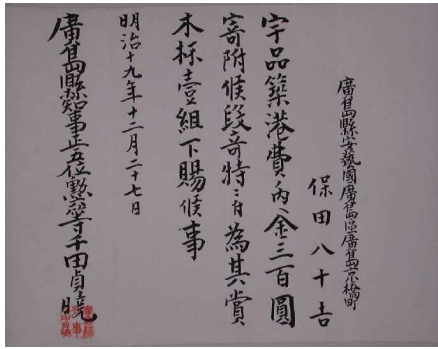 廣島縣安藝國廣島區廣島京橋町
保田八十吉
宇品築港費ノ内ヘ金三百圓
寄附候段奇特ニ付為其賞
木杯壹組下賜候事
明治十九年十二月二十七日
廣島縣知事正五位勲四等千田貞暁